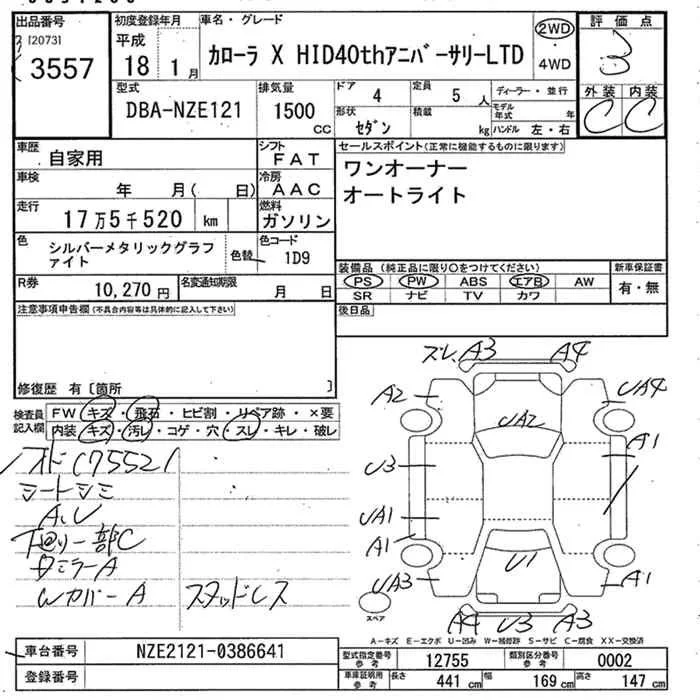 出品番号 初度登録年月 車名・グレード 評価点
[2073] 平成 カローラ X HID40thアニバーサリーLTD 2WD・4WD 3
3557 18 1月 外装 内装
型式 排気量 ドア 4 定員 5人 ディーラー・並行 C C
DBA-NZE121 1500CC 形状 セダン 積載 kg モデル年式 年 ハンドル 左・右
車歴 自家用 シフト FAT セールスポイント(正常に機能するものに限ります)
車検 年 月( 日) 冷房 AAC ワンオーナー
走行 17万5千520 km 燃料 ガソリン オートライト
色 シルバーメタリックグラファイト 色替 色コード 1D9
装備品(純正品に限り○をつけてください) 新車保証書
R券 10,270円 名変通知期限 月 日 PS・PW・ABS・エアB・AW 有・無
SR・ナビ・TV・カワ
注意事項申告欄(不具合内容等は具体的に記入して下さい) 後日品
修復歴 有〔箇所 〕
検査員記入欄 FW キズ・飛石・ヒビ割・リペア跡・×要
内装 キズ・汚レ・コゲ・穴・スレ・キレ・破レ
シートシミ
A,U
下回リ一部C
ミラーA
WカバーA スタッドレス
ズレ A3 A4
A2 UA4
UA2
U3 A1
UA1
A1 U1
UA3 A1
スペア
A4 U3 A3
A-キズ E-エクボ U-凹み W-補修跡 S-サビ C-腐食 XX-交換済
車台番号 NZE2121-0386641 型式指定番号 参考 12755 類別区分番号 参考 0002
登録番号 車庫証明用 参考 長さ 441cm 幅 169cm 高さ 147cm